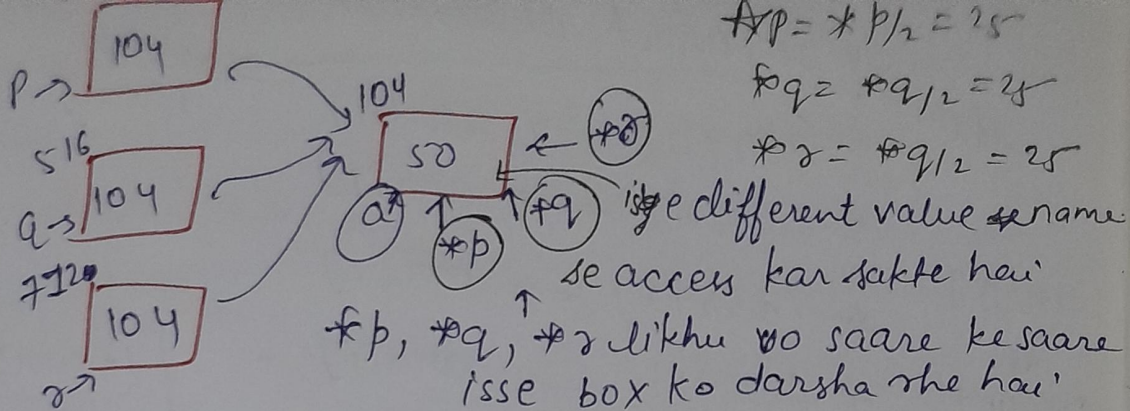 104
p→
104
50
516
104
q→
7920
104
r→
a
*p
*q
*r
*p = *p/2 = 25
*q = *q/2 = 25
*r = *q/2 = 25
isse different value name
se access kar sakte hai
*p, *q, *r likhu wo saare ke saare
isse box ko darsha rhe hai